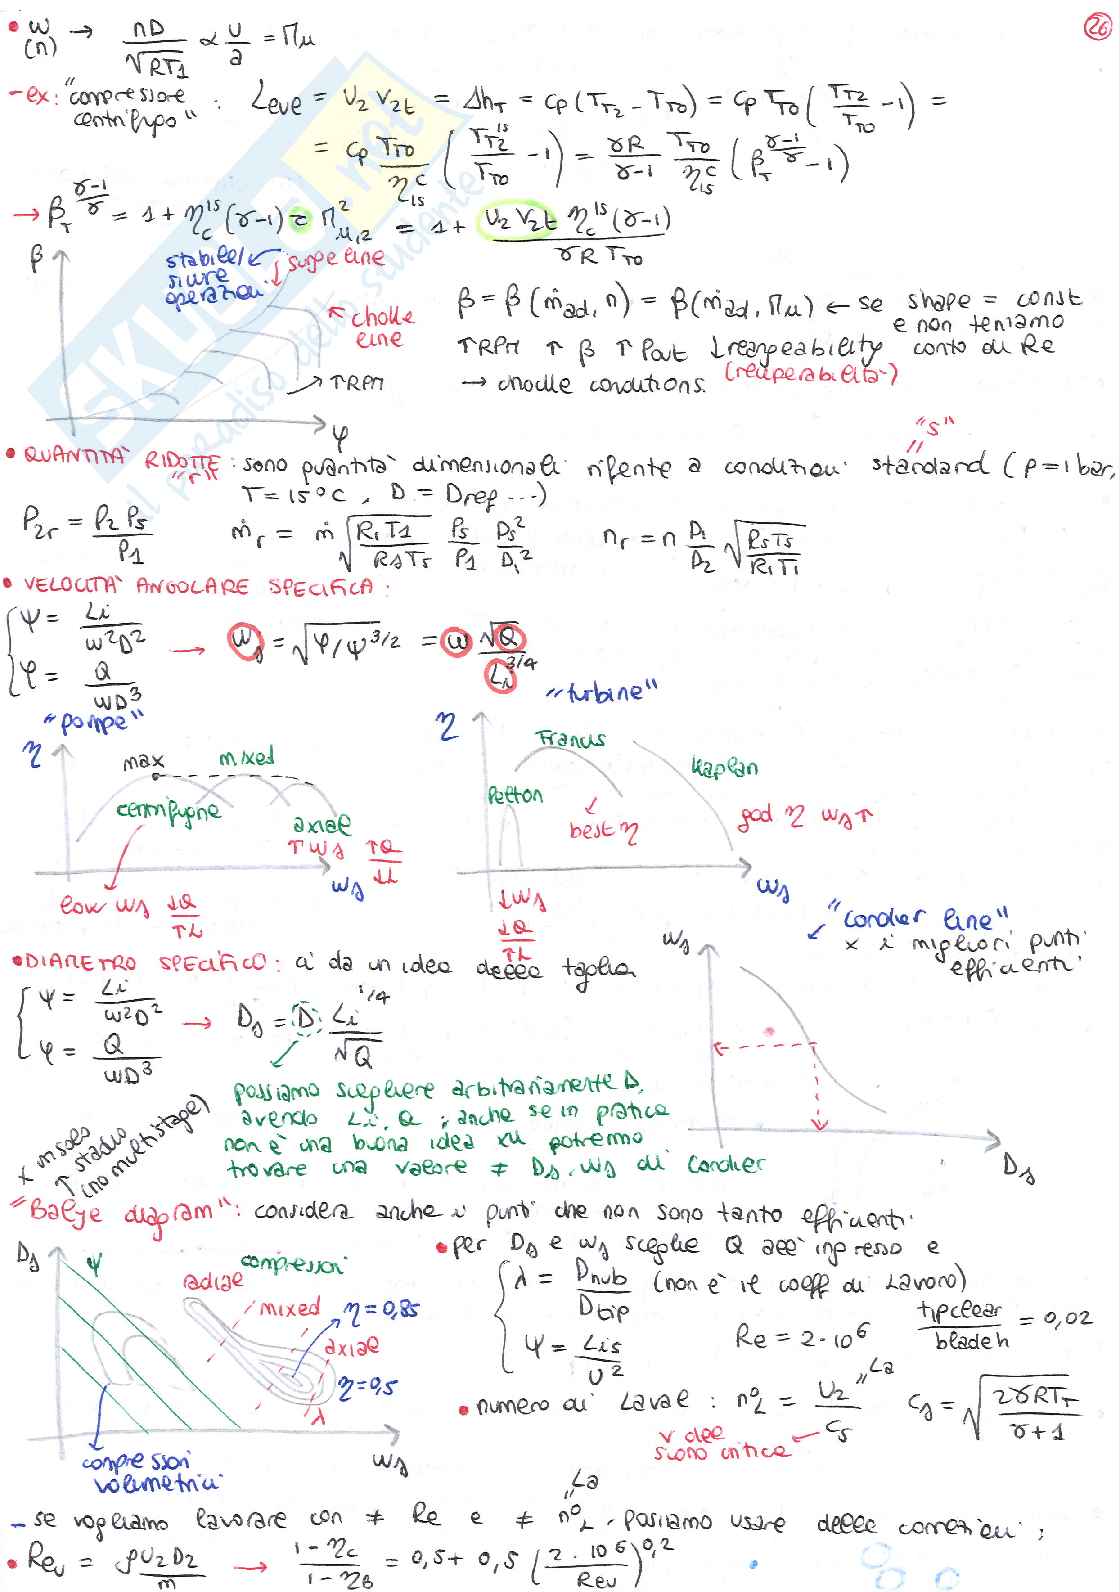 26
• ω (n) → nD/√RT1 ∝ U/a = Πμ
- ex: "compressore centrifugo" : Leue = U2 V2t = ΔhT = cp (TT2 - TT0) = cp TT0 (TT2/TT0 - 1) =
= cp TT0/ηis^c (TT2^is/TT0 - 1) = γR/γ-1 TT0/ηis^c (βT^(γ-1/γ) - 1)
→ βT^(γ-1/γ) = 1 + ηc^is (γ-1) = Π²μ,2 = 1 + U2 V2t ηc^is (γ-1) / γR TT0
β
stabile/ sicure operazioni
surge line
choke line
↑RPM
φ
β = β (ṁad, n) = β(ṁad, Πμ) ← se shape = const
e non teniamo conto di Re
↑RPM ↑ β ↑ Pout ↓ reangeability
(recuperabilità)
→ choke conditions.
"s"
• QUANTITÀ RIDOTTE "r" : sono quantità dimensionali riferite a condizioni standard (p=1bar,
T=15°C, D = Dref ...)
P2r = P2 Ps / P1
ṁr = ṁ √(R1T1/RsTs) Ps/P1 Ds²/D1²
nr = n D1/D2 √(RsTs/R1T1)
• VELOCITÀ ANGOLARE SPECIFICA:
ψ = Li/ω²D²
φ = Q/ωD³
→ ωs = √φ/ψ^3/2 = ω √Q/Li^3/4
"pompe"
η
max
mixed
centrifughe
axiale
↑ωs ↑Q/↓L
ωs
low ωs ↓Q/↑L
"turbine"
η
Francis
Kaplan
Pelton
best η
god η ωs↑
ωs
↓ωs
↓Q/↑L
"Cordier line"
x i migliori punti efficienti.
ωs
Ds
• DIAMETRO SPECIFICO: ci da un idea della taglia
ψ = Li/ω²D²
φ = Q/ωD³
→ Ds = D Li^1/4/√Q
possiamo scegliere arbitrariamente D,
avendo Li, Q ; anche se in pratica
non è una buona idea xu potremmo
trovare una valore ≠ Ds, ωs di Cordier
x un solo ↑ stadio (no multistage)
"Balje diagram": considera anche i punti che non sono tanto efficienti.
Ds
ψ
compressori
radiae
mixed
η=0,85
axiae
η=0,5
λ
compressori volumetrici
ωs
• per Ds e ωs sceglie Q all'ingresso e
λ = Dhub/Dtip (non è il coeff di lavoro)
ψ = Lis/U²
Re = 2·10⁶
tipclear/bladeh = 0,02
• numero di Laval : n°L = U2/cs "La
cs = √(2γRTT/γ+1)
v del suono critica
"La
- se vogliamo lavorare con ≠ Re e ≠ n°L, possiamo usare delle correzioni:
• Reu = ρU2D2/m → 1-ηc/1-ηB = 0,5 + 0,5 (2·10⁶/Reu)^0,2
SKUOLA.net
il paradiso dello studente